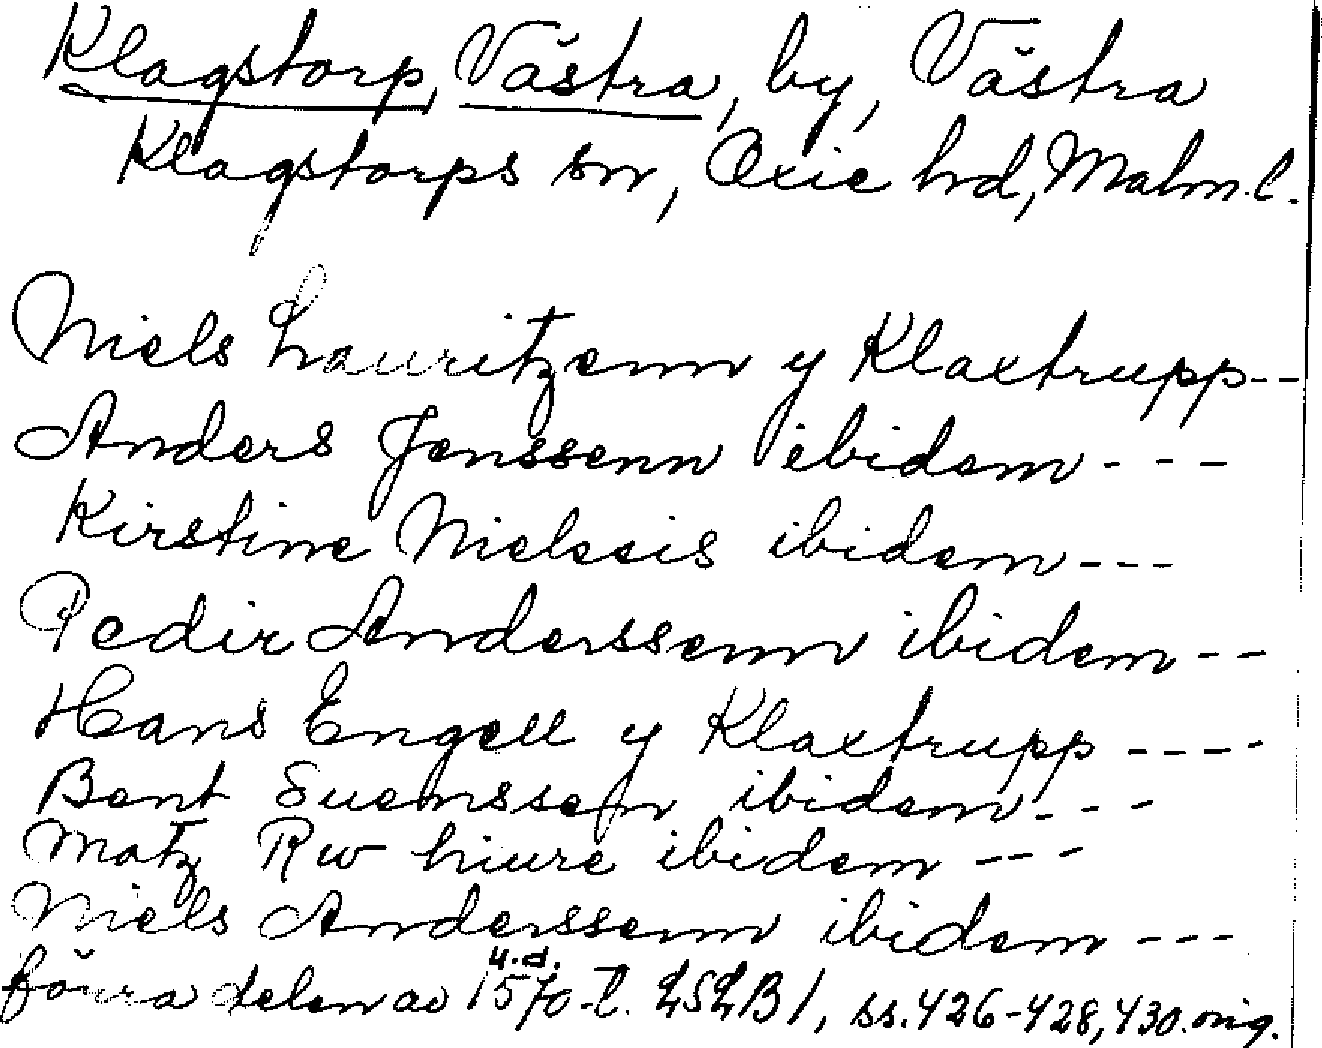 Klagstorp, Västra, by, Västra
Klagstorps sn, Oxie hd, Malm. l.
Niels Lauritzenn y Klaxtrupp---
Anders Jenssenn ibidem---
Kirstine Nielseis ibidem---
Pedir Anderssenn ibidem---
Hans Engell y Klaxtrupp----
Bent Suenssen ibidem---
Matz Rw hiure ibidem---
Niels Anderssenn ibidem---
u.d.
förra delen av 1570-t. LSLB1, ss. 426-428, 430. orig.